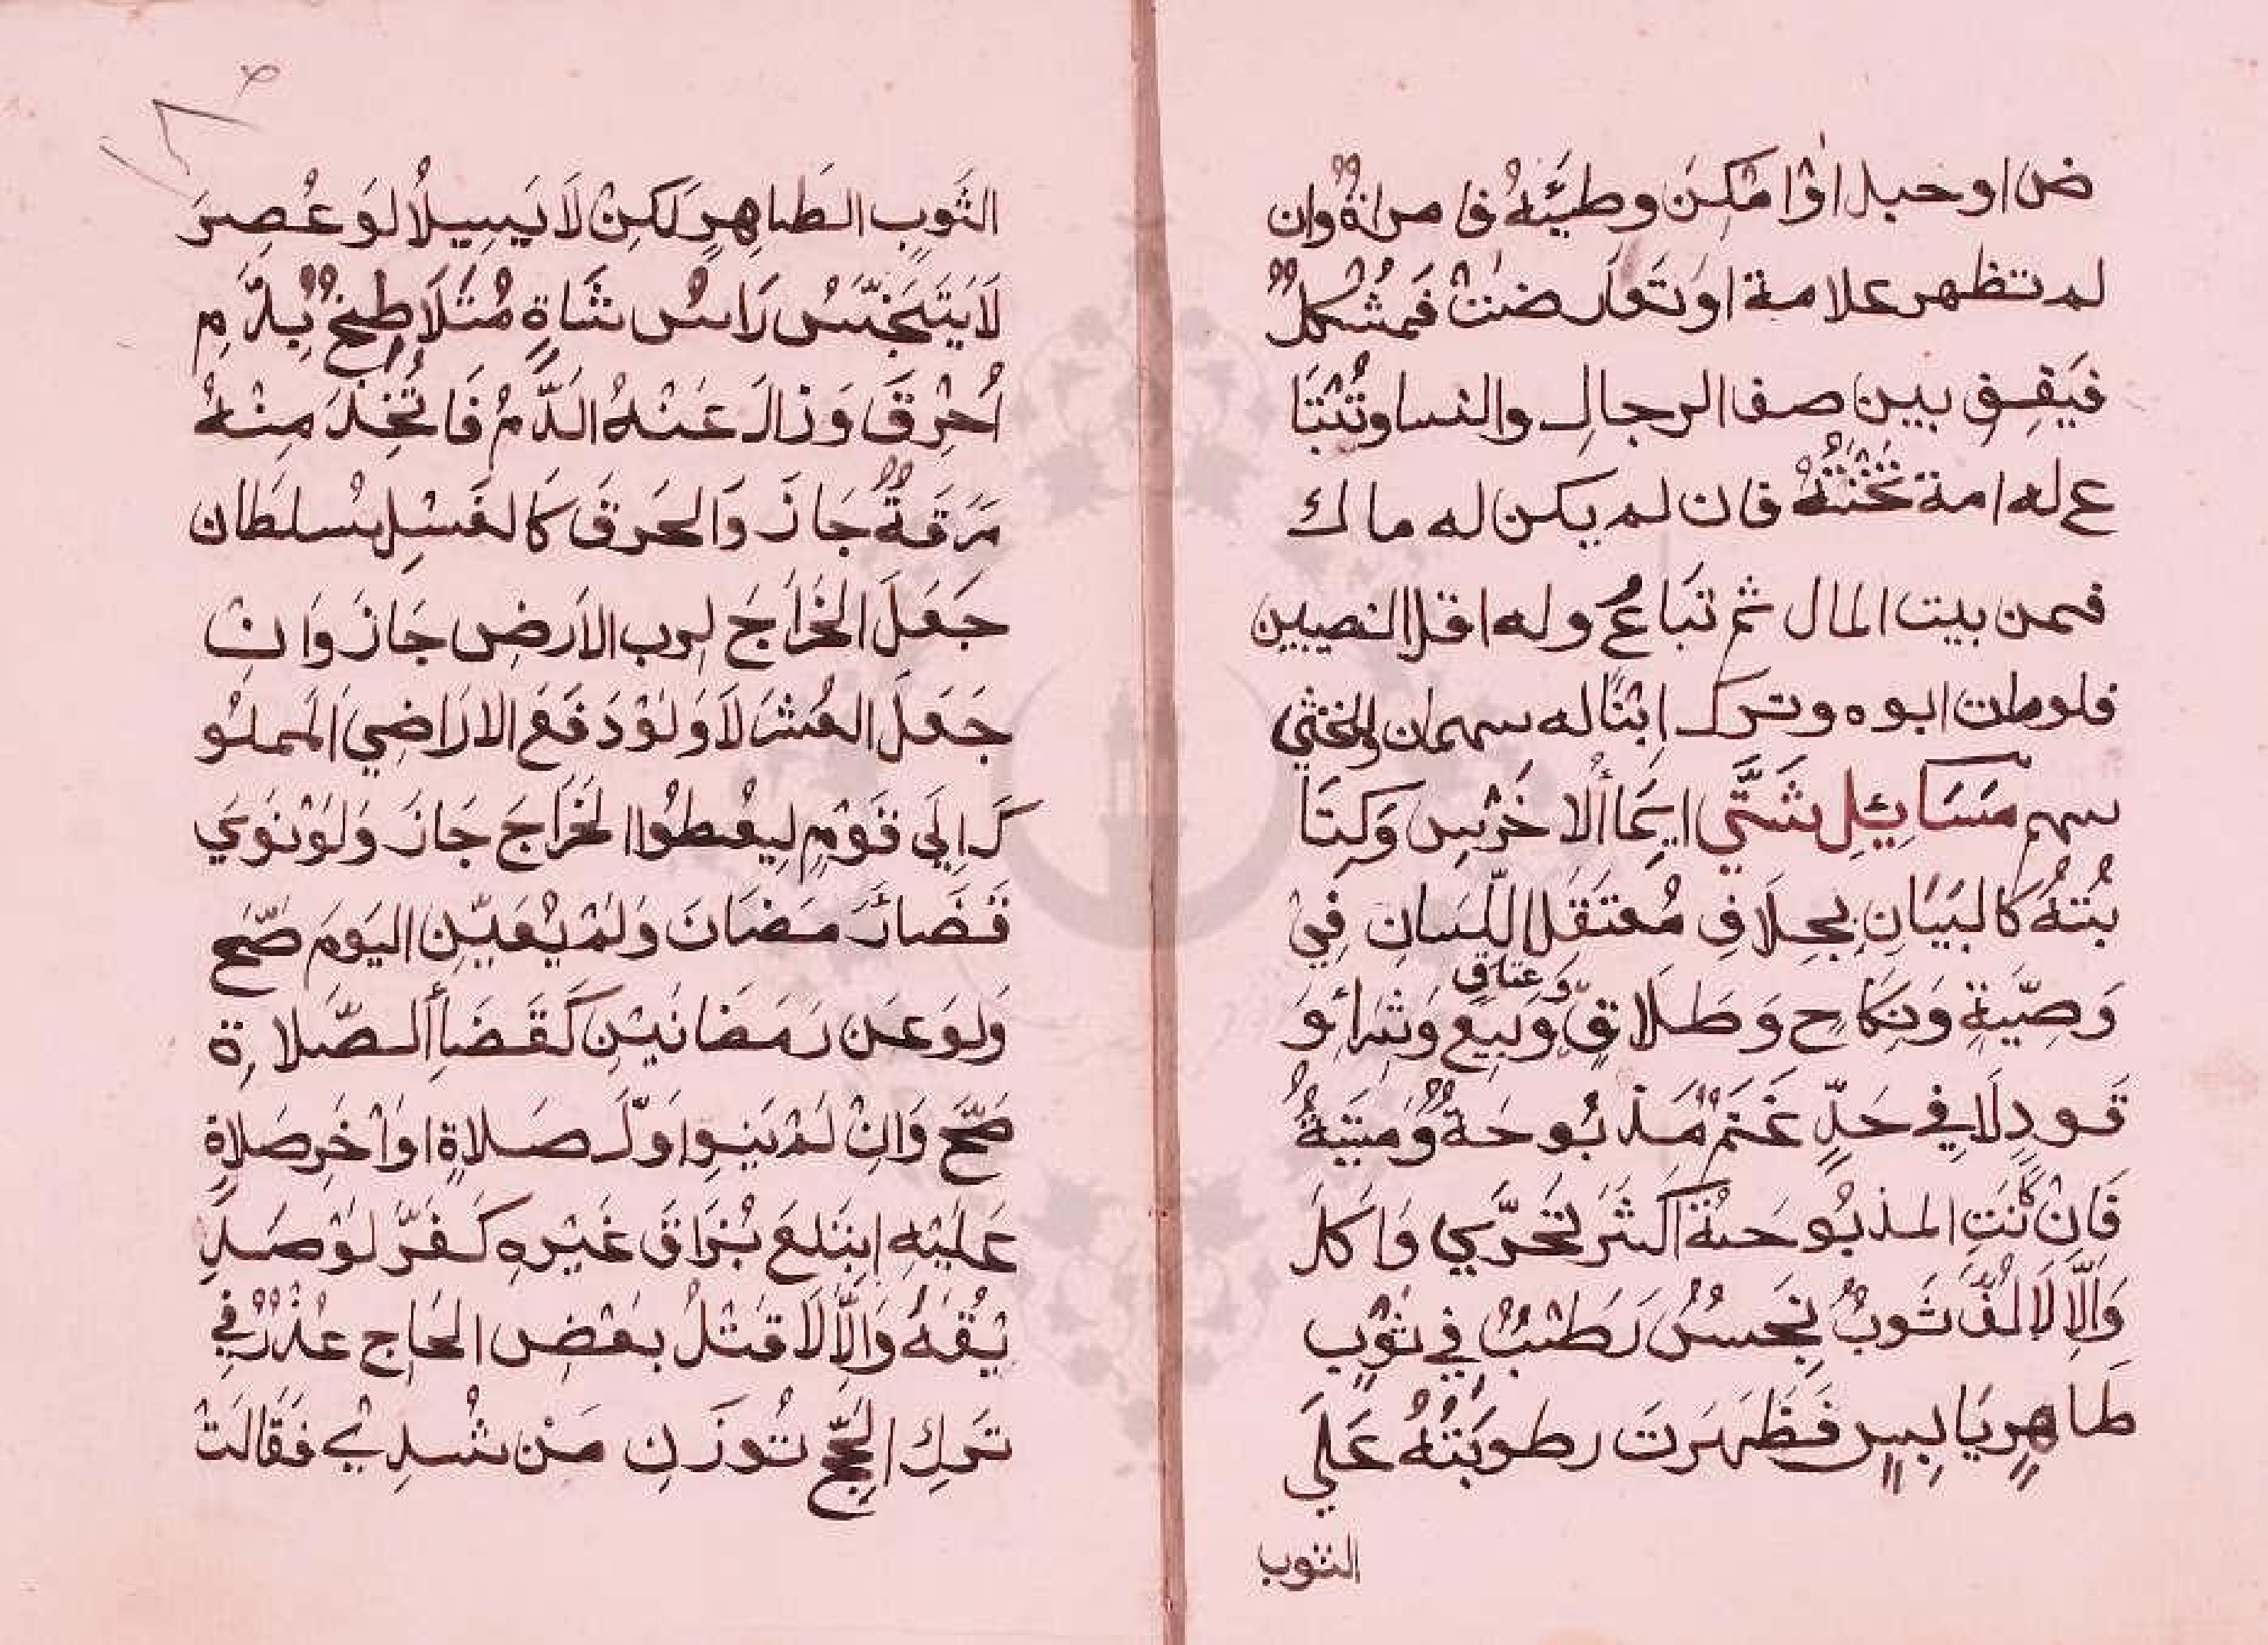 ض او حبل اوْ امْكِنَ وطيَّهُ فا مراةٌ وان
لم تظهر علامة اوَ تَعَارضَتْ فَمُشْكِلٌ
فَيَقِفِ بين صف الرجال والنسا وتُبْتَا
ع له امة تَخْتَنُهُ فان لم يكن له مال
فمن بيت المال ثم تَباعُ وله اقل النصيبين
فلومات ابوه وترك اِبْنًا له سهمان وللخنثي
سهم مَسَائِلِ شَتَّي اِيمَا أُلا خَرْسِ وَكِتَا
بُتهُ كا لبَيَانِ بِخِلَافِ مُعتَقَلِ اللِّسَانِ فِيْ
وَصِيَّةِ وَنِكَاحِ وَطَلَاقٍ وَعتاقٍ وَبَيعٍ وَشِرَائٍ وَ
قَودٍ لَا فِي حَدٍّ غَنَمٌ مَذبُوحَةٌ وَمَيتَةٌ
فَانْ كَانَتِ المذبُوحَةُ اكثَرَ تَحَرَّي وَاكلَ
وَالَّا لَا لُفَّ ثَوبٌ نَجِسٌ رَطْبٌ فِي ثوْبٍ
طَاهِرٍ يَا بِسٍ فَظَهَرَتَ رطوبَتُهُ عَلَي
الثوب
الثَوبِ الطَاهِرِ لَكِنْ لَا يَسِيلُ لوَ عُصِرَ
لَا يَتَنَجَّسُ رَاسُ شَاةٍ مُتَلَاطِخٌ بِدَّمِ
اُحْرِقَ وَزالَ عَنْهُ الدَّمُ فَاتُّخِذَ مِنْهُ
مَرَقَةٌ جَازَ وَالحَرقَ كَالغَسْلِ سُلطَان
جَعَلَ الخَرَاجَ لِرب الاَرضِ جَازَ وَانْ
جَعَلَ العُشْرَ لَا وَلوْ دَفَعَ الارَاضِيَ المَملُو
كَ اِلَي قَوْمٍ لِيعُطوُا الخَرَاجَ جَازَ وَلوْ نوَي
قَضَا رَمَضَانَ وَلَمْ يُعَيِّنِ اليَومَ صَّحَ
وَلوَ عَن رَمَضَانَيْنِ كَقَضَا أَلصَّلاةِ
صَحَّ وَانْ لَمْ يَنوِ اوَّلَ صَلاةٍ اوَ اْخَرِ صَلاةٍ
عَلَيْهِ اِبتَلعَ بُزَاقَ غَيْرِهِ كَفَّرَ لوْ صَدِ
يْقُهُ وَالَّا لَا قَتْلُ بعْضِ الحَاجِ عُذْرٌ فِي
تَركِ الحَجِّ تُوزَنِ مَنْ شُدِيْ فقَالَتْ